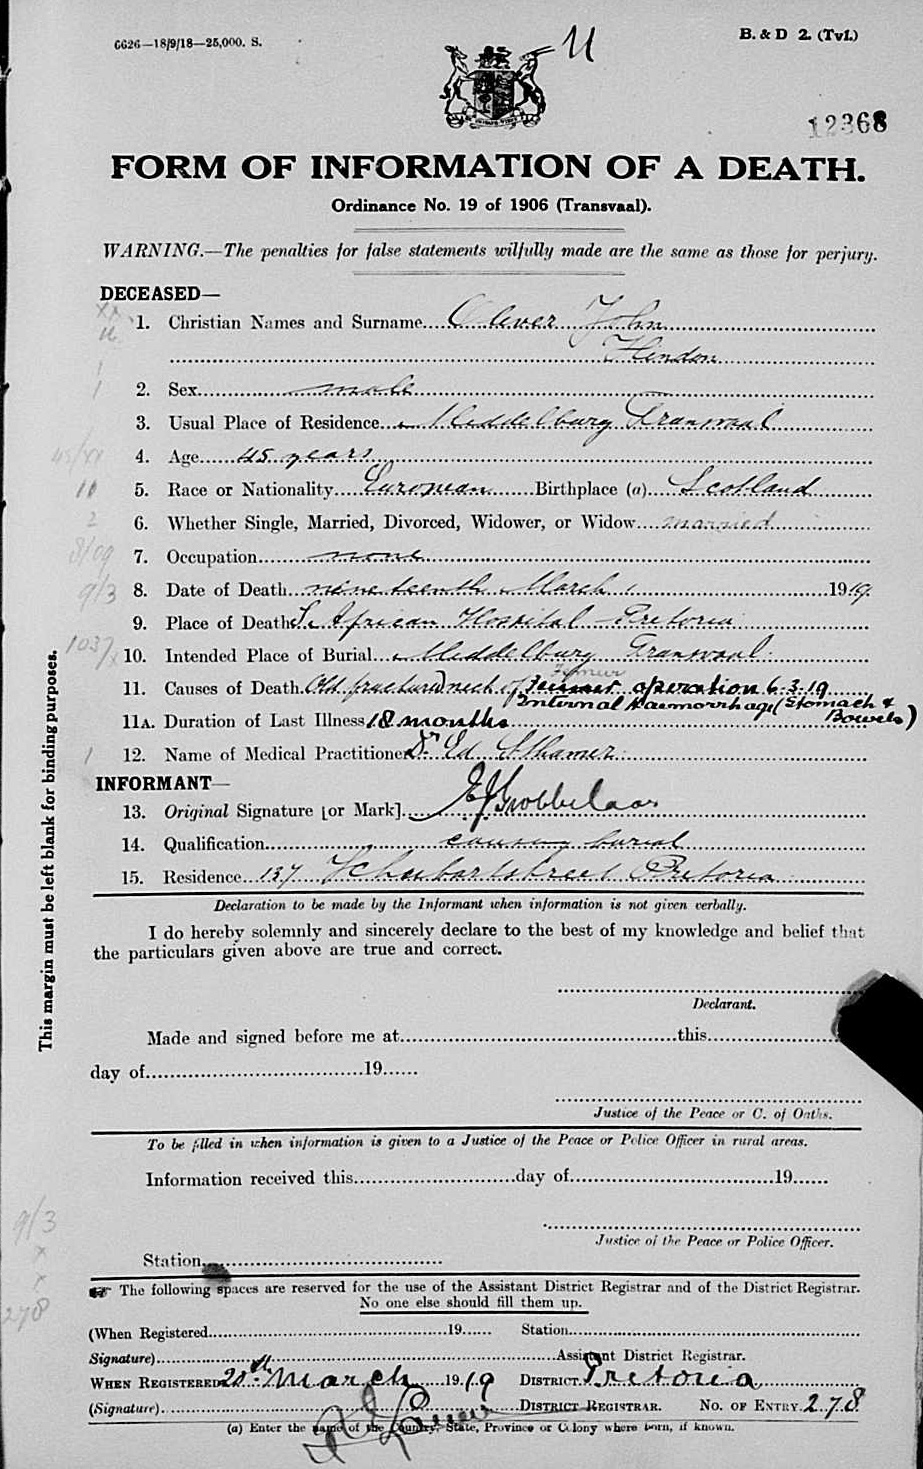 6626—18/9/18—25,000. S.
U
B. & D 2. (Tvl.)
12368
FORM OF INFORMATION OF A DEATH.
Ordinance No. 19 of 1906 (Transvaal).
WARNING.—The penalties for false statements wilfully made are the same as those for perjury.
DECEASED—
1. Christian Names and Surname Oliver John
Hendon
2. Sex male
3. Usual Place of Residence Middelburg Transvaal
4. Age 45 years
5. Race or Nationality European Birthplace (a) Scotland
6. Whether Single, Married, Divorced, Widower, or Widow married
7. Occupation none
8. Date of Death nineteenth March 1919.
9. Place of Death S. African Hospital Pretoria
10. Intended Place of Burial Middelburg Transvaal
11. Causes of Death Old fractured neck of femur operation 6.3.19
Internal Haemorrhage (Stomach &
Bowels)
11A. Duration of Last Illness 18 months
12. Name of Medical Practitioner Dr Ed
INFORMANT—
13. Original Signature [or Mark] EJ Grobbelaar
14. Qualification causing burial
15. Residence 137 Schubartstreet Pretoria
Declaration to be made by the Informant when information is not given verbally.
I do hereby solemnly and sincerely declare to the best of my knowledge and belief that
the particulars given above are true and correct.
Declarant.
Made and signed before me at this
day of 19
Justice of the Peace or C. of Oaths.
To be filled in when information is given to a Justice of the Peace or Police Officer in rural areas.
Information received this day of 19
Justice of the Peace or Police Officer.
Station
The following spaces are reserved for the use of the Assistant District Registrar and of the District Registrar.
No one else should fill them up.
(When Registered 19 Station
Signature) Assistant District Registrar.
WHEN REGISTERED 20th March 1919 DISTRICT Pretoria
(Signature) DISTRICT REGISTRAR. No. OF ENTRY 278
(a) Enter the name of the Country, State, Province or Colony where born, if known.
This margin must be left blank for binding purposes.
45/xx
10
2
8/09
9/3
1037
1
9/3
x
x
278